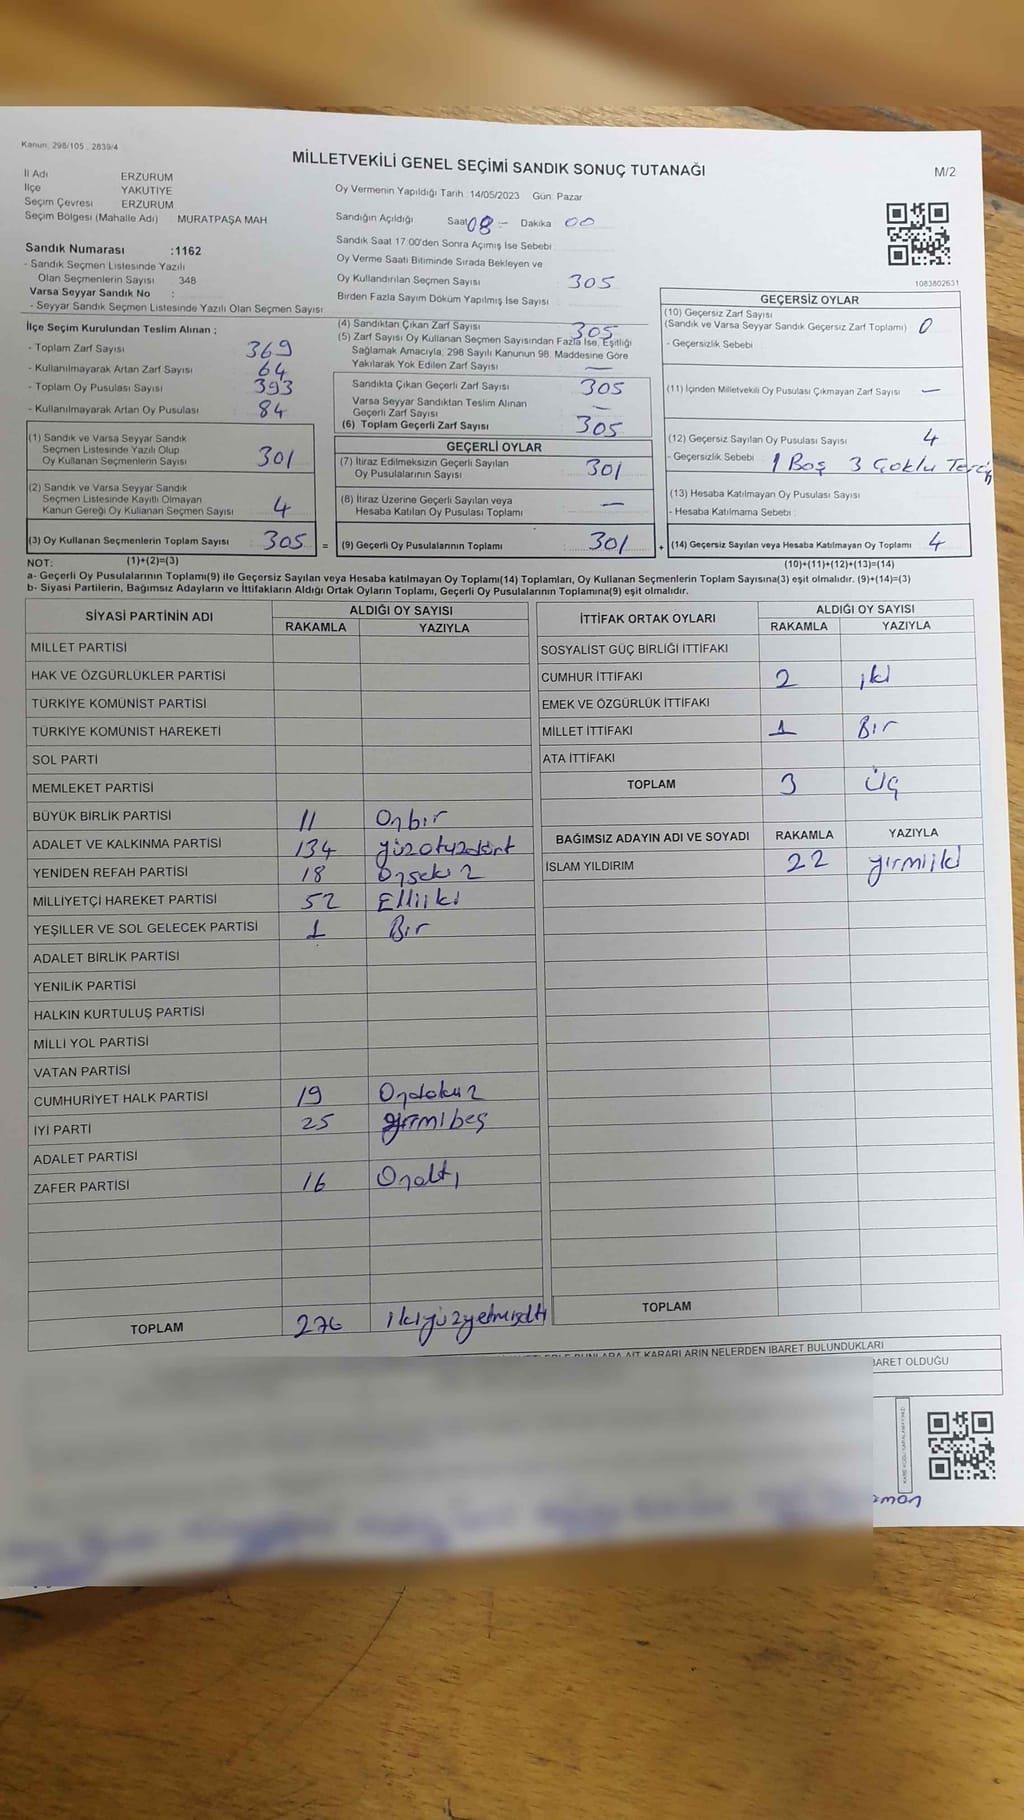 Kanun: 298/105 , 2839/4
MİLLETVEKİLİ GENEL SEÇİMİ SANDIK SONUÇ TUTANAĞI
M/2
İl Adı ERZURUM
İlçe YAKUTİYE
Seçim Çevresi ERZURUM
Seçim Bölgesi (Mahalle Adı) MURATPAŞA MAH
Sandık Numarası :1162
- Sandık Seçmen Listesinde Yazılı
Olan Seçmenlerin Sayısı 348
Varsa Seyyar Sandık No :
- Seyyar Sandık Seçmen Listesinde Yazılı Olan Seçmen Sayısı:
Oy Vermenin Yapıldığı Tarih :14/05/2023 Gün: Pazar
Sandığın Açıldığı Saat 08 - Dakika 00
Sandık Saat 17.00'den Sonra Açımış İse Sebebi
Oy Verme Saati Bitiminde Sırada Bekleyen ve
Oy Kullandırılan Seçmen Sayısı 305
Birden Fazla Sayım Döküm Yapılmış İse Sayısı
1083802631
İlçe Seçim Kurulundan Teslim Alınan ;
- Toplam Zarf Sayısı 369
- Kullanılmayarak Artan Zarf Sayısı 64
- Toplam Oy Pusulası Sayısı 393
- Kullanılmayarak Artan Oy Pusulası 84
(1) Sandık ve Varsa Seyyar Sandık
Seçmen Listesinde Yazılı Olup
Oy Kullanan Seçmenlerin Sayısı 301
(2) Sandık ve Varsa Seyyar Sandık
Seçmen Listesinde Kayıtlı Olmayan
Kanun Gereği Oy Kullanan Seçmen Sayısı 4
(3) Oy Kullanan Seçmenlerin Toplam Sayısı 305 =
(4) Sandıktan Çıkan Zarf Sayısı 305
(5) Zarf Sayısı Oy Kullanan Seçmen Sayısından Fazla İse, Eşitliği
Sağlamak Amacıyla; 298 Sayılı Kanunun 98. Maddesine Göre
Yakılarak Yok Edilen Zarf Sayısı —
Sandıkta Çıkan Geçerli Zarf Sayısı 305
Varsa Seyyar Sandıktan Teslim Alınan
Geçerli Zarf Sayısı —
(6) Toplam Geçerli Zarf Sayısı 305
GEÇERLİ OYLAR
(7) İtiraz Edilmeksizin Geçerli Sayılan
Oy Pusulasının Sayısı 301
(8) İtiraz Üzerine Geçerli Sayılan veya
Hesaba Katılan Oy Pusulası Toplamı —
(9) Geçerli Oy Pusulalarının Toplamı 301 +
GEÇERSİZ OYLAR
(10) Geçersiz Zarf Sayısı
(Sandık ve Varsa Seyyar Sandık Geçersiz Zarf Toplamı) 0
- Geçersizlik Sebebi
(11) İçinden Milletvekili Oy Pusulası Çıkmayan Zarf Sayısı —
(12) Geçersiz Sayılan Oy Pusulası Sayısı 4
- Geçersizlik Sebebi : 1 Boş 3 Çoklu Tercih
(13) Hesaba Katılmayan Oy Pusulası Sayısı
- Hesaba Katılmama Sebebi
(14) Geçersiz Sayılan veya Hesaba Katılmayan Oy Toplamı 4
NOT: (1)+(2)=(3)
(10)+(11)+(12)+(13)=(14)
a- Geçerli Oy Pusulalarının Toplamı(9) ile Geçersiz Sayılan veya Hesaba katılmayan Oy Toplamı(14) Toplamları, Oy Kullanan Seçmenlerin Toplam Sayısına(3) eşit olmalıdır. (9)+(14)=(3)
b- Siyasi Partilerin, Bağımsız Adayların ve İttifakların Aldığı Ortak Oyların Toplamı, Geçerli Oy Pusulalarının Toplamına(9) eşit olmalıdır.
SİYASİ PARTİNİN ADI
ALDIĞI OY SAYISI
RAKAMLA YAZIYLA
MİLLET PARTİSİ
HAK VE ÖZGÜRLÜKLER PARTİSİ
TÜRKİYE KOMÜNİST PARTİSİ
TÜRKİYE KOMÜNİST HAREKETİ
SOL PARTİ
MEMLEKET PARTİSİ
BÜYÜK BİRLİK PARTİSİ 11 Onbir
ADALET VE KALKINMA PARTİSİ 134 yüzotuzdört
YENİDEN REFAH PARTİSİ 18 Onsekiz
MİLLİYETÇİ HAREKET PARTİSİ 52 Elliiki
YEŞİLLER VE SOL GELECEK PARTİSİ 1 Bir
ADALET BİRLİK PARTİSİ
YENİLİK PARTİSİ
HALKIN KURTULUŞ PARTİSİ
MİLLİ YOL PARTİSİ
VATAN PARTİSİ
CUMHURİYET HALK PARTİSİ 19 Ondokuz
İYİ PARTİ 25 yirmibeş
ADALET PARTİSİ
ZAFER PARTİSİ 16 Onaltı
TOPLAM 276 ikiyüzyetmişaltı
İTTİFAK ORTAK OYLARI
ALDIĞI OY SAYISI
RAKAMLA YAZIYLA
SOSYALİST GÜÇ BİRLİĞİ İTTİFAKI
CUMHUR İTTİFAKI 2 iki
EMEK VE ÖZGÜRLÜK İTTİFAKI
MİLLET İTTİFAKI 1 Bir
ATA İTTİFAKI
TOPLAM 3 Üç
BAĞIMSIZ ADAYIN ADI VE SOYADI RAKAMLA YAZIYLA
İSLAM YILDIRIM 22 yirmiiki
TOPLAM
AİT KARARLARIN NELERDEN İBARET BULUNDUKLARI
BARET OLDUĞU